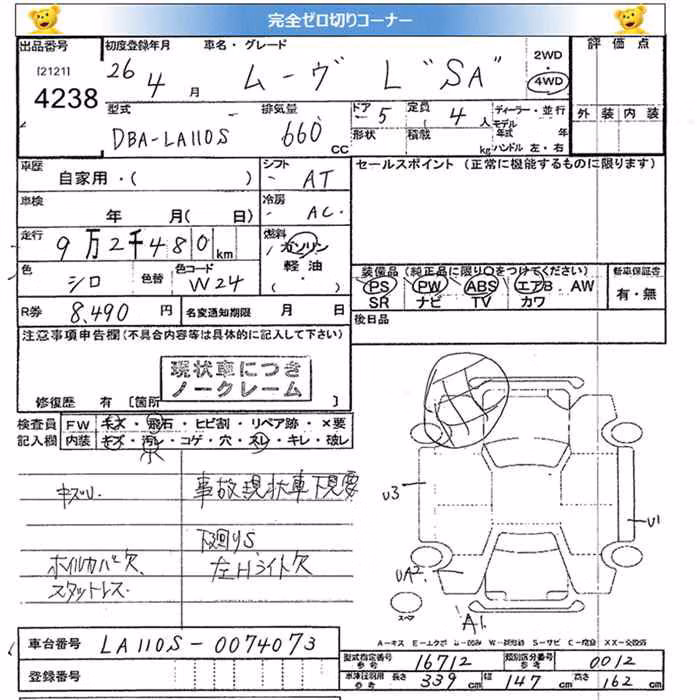 完全ゼロ切りコーナー
出品番号 初度登録年月 車名・グレード 2WD 評価点
[2121] 26 4 月 ムーヴ L "SA" 4WD
4238 型式 排気量 ドア 5 定員 4 人 ディーラー・並行 外装 内装
DBA-LA110S 660 cc 形状 積載 kg モデル年式 年
ハンドル 左・右
車歴 自家用・( ) シフト AT セールスポイント (正常に機能するものに限ります)
車検 年 月( 日) 冷房 AC
走行 9万2千480km 燃料 ガソリン
軽油
( ・ )
色 シロ 色替 色コード W24 装備品 (純正品に限り○をつけてください) 新車保証書
PS PW ABS エアB AW 有・無
SR ナビ TV カワ
R券 8,490 円 名変通知期限 月 日 後日品
注意事項申告欄 (不具合内容等は具体的に記入して下さい)
現状車につき
ノークレーム
修復歴 有 [箇所 ]
検査員 FW キズ・飛石・ヒビ割・リペア跡・×要
記入欄 内装 キズ・汚レ・コゲ・穴・スレ・キレ・破レ
キズU. 事故現状車下見要
下廻りS
ホイルカバー欠 左Hライト欠
スタットレス.
U3
U1
UA2
スペア
A1
A-キズ E-エクボ U-凹み W-補修跡 S-サビ C-腐食 XX-交換済
車台番号 LA110S-0074073
型式指定番号 参考 16712 類別区分番号 参考 0012
登録番号 長さ 339 cm 幅 147 cm 高さ 162 cm